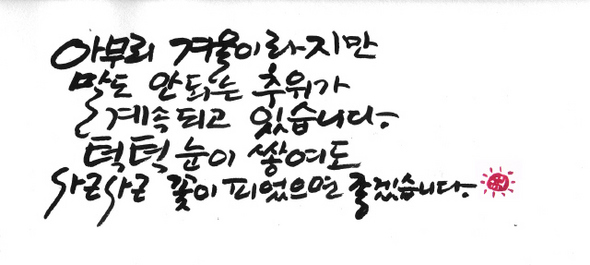 아무리 겨울이라지만
말도 안되는 추위가
계속되고 있습니다.
턱턱 눈이 쌓여도
사근사근 꽃이 피었으면 좋겠습니다.